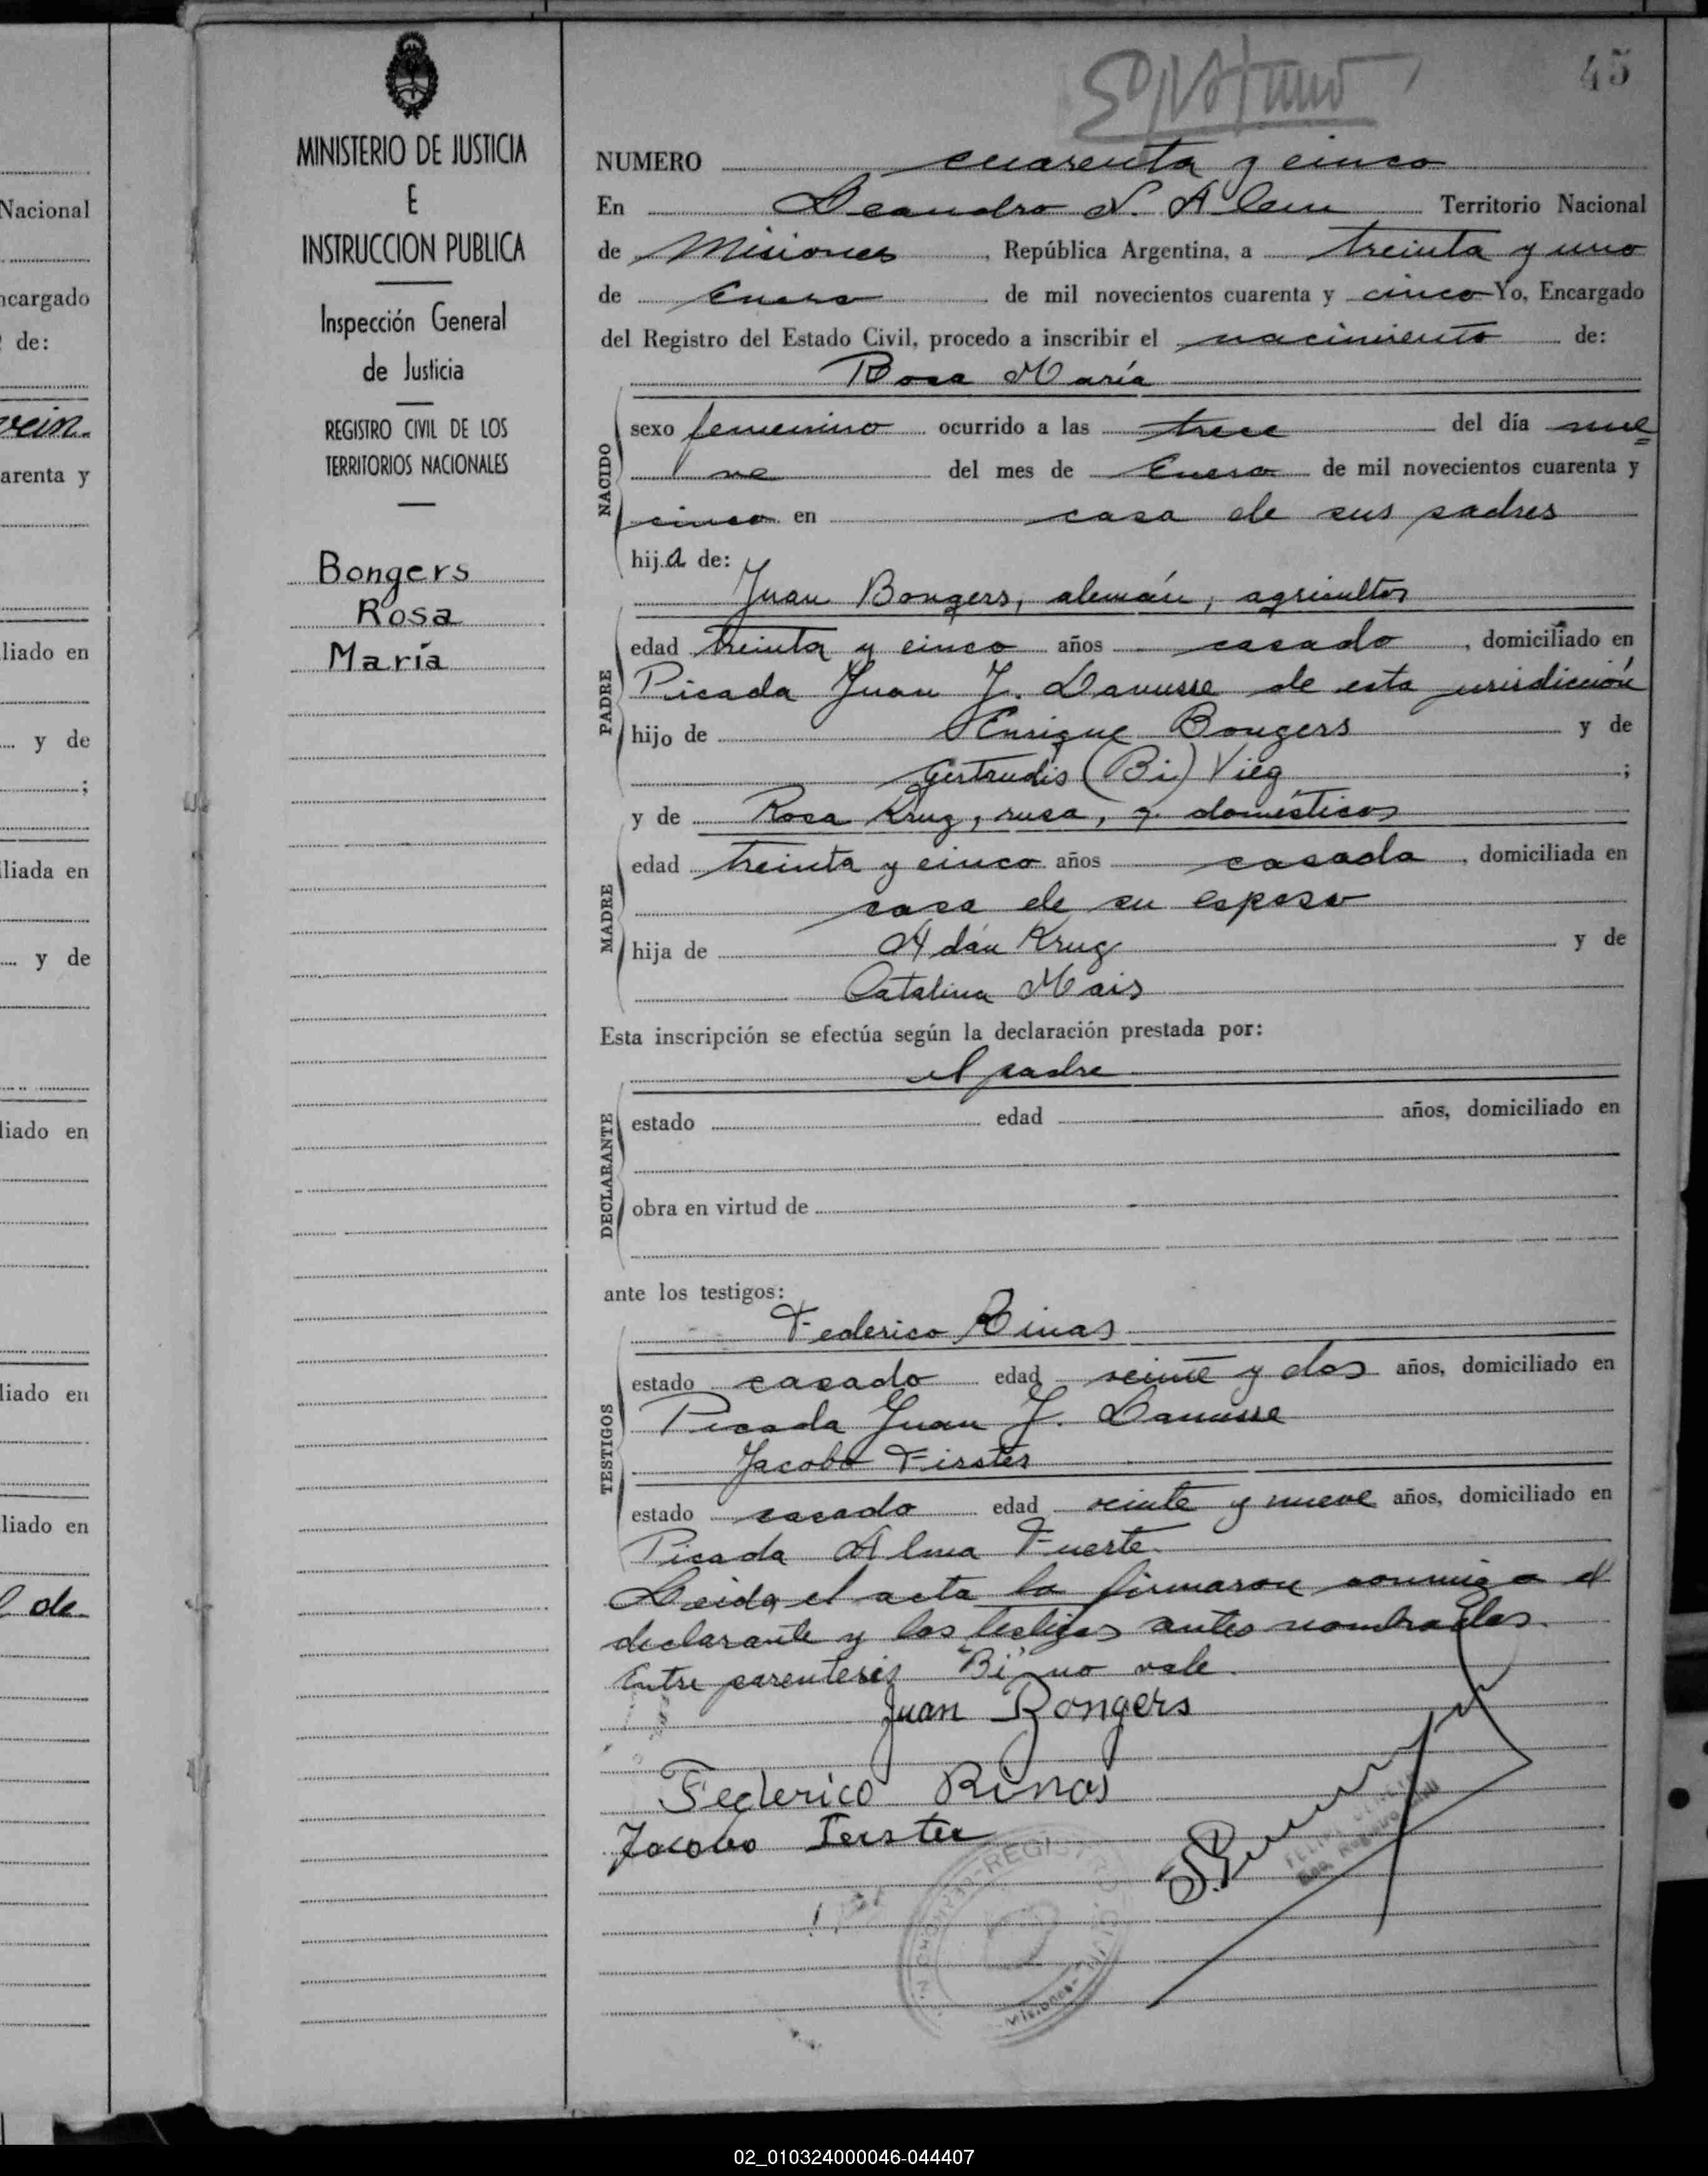 45
MINISTERIO DE JUSTICIA
E
INSTRUCCION PUBLICA
Inspección General
de Justicia
REGISTRO CIVIL DE LOS
TERRITORIOS NACIONALES
Bongers
Rosa
María
NUMERO cuarenta y cinco
En Leandro N. Alem Territorio Nacional
de Misiones, República Argentina, a treinta y uno
de Enero de mil novecientos cuarenta y cinco Yo, Encargado
del Registro del Estado Civil, procedo a inscribir el nacimiento de:
Rosa María
NACIDO
sexo femenino ocurrido a las trece del día nue=
ve del mes de Enero de mil novecientos cuarenta y
cinco en casa de sus padres
hija de:
Juan Bongers, alemán, agricultor
PADRE
edad treinta y cinco años casado, domiciliado en
Picada Juan J. Lanusse de esta jurisdicción
hijo de Enrique Bongers y de
Gertrudis (Bi) Vieg;
y de Rosa Krug, rusa, q. domésticos
MADRE
edad treinta y cinco años casada, domiciliada en
casa de su esposo
hija de Adán Krug y de
Catalina Mais
Esta inscripción se efectúa según la declaración prestada por:
el padre
DECLARANTE
estado edad años, domiciliado en
obra en virtud de
ante los testigos:
Federico Rinas
TESTIGOS
estado casado edad veinte y dos años, domiciliado en
Picada Juan J. Lanusse
Jacobo Firster
estado casado edad veinte y nueve años, domiciliado en
Picada Alma Fuerte.
Leida el acta la firmaron conmigo el
declarante y los testigos antes nombrados.
Entre parentesis "Bi" no vale.
Juan Bongers
Federico Rinas
Jacobo Ferster
REGISTRO CIVIL
Misiones
Nacional
ncargado
de:
vein.
arenta y
liado en
y de
;
liada en
y de
liado en
liado en
liado en
l de
02_010324000046-044407